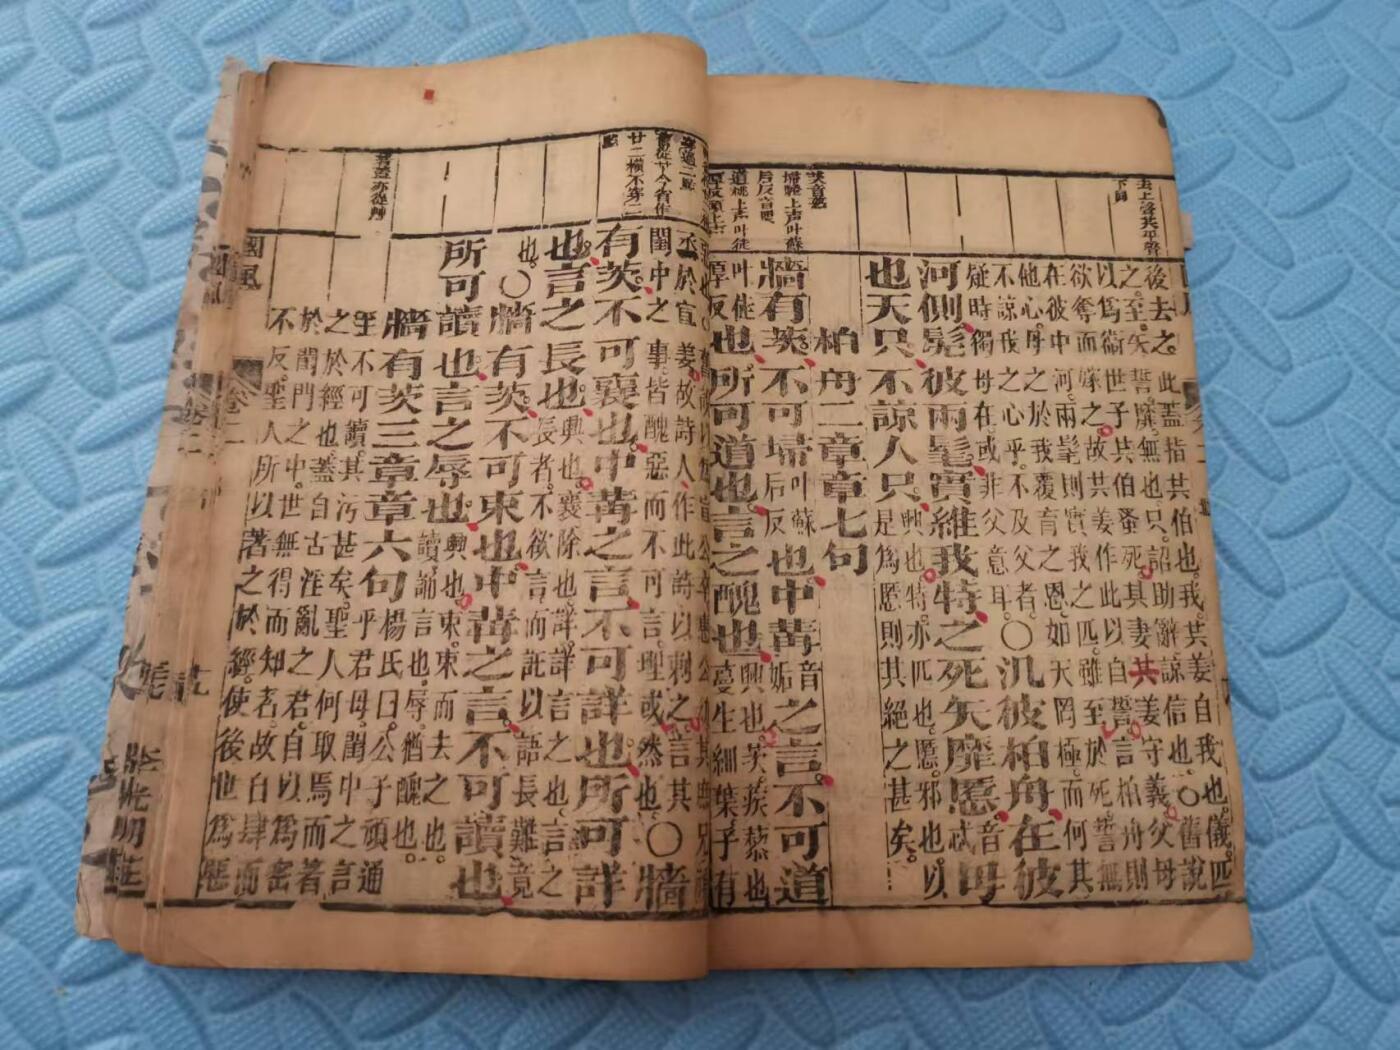 去上聲共平聲
下同
後去之。此蓋指共伯也。我共姜自我也。儀匹
之。至矢誓。靡無也。只語助辭諒信也。○舊說
以爲衞世子共伯蚤死。其妻共姜守義。父母
欲奪而嫁之。故共姜作此以自誓。言柏舟則
在彼中河。兩髦則實我之匹。雖至於死。誓無
他心。母之於我。覆育之恩。如天罔極。而何其
不諒我之心乎。不及父者。
疑時獨母在。或非父意耳。
○汎彼柏舟在彼
河側髧彼兩髦實維我特之死矢靡慝。音忒母
也天只不諒人只
興也。特亦匹也。慝邪也。以
是爲慝則其絕之甚矣。
柏舟二章章七句
茨音慈
埽騷上声叶蘇
后反言叟
道桃上声叶徒
厚反頭上声
牆有茨不可埽叶蘇后反也中冓音姤之言不可道
叶徒厚反也所可道也言之醜也
興也。茨蒺藜也
蔓生細葉子有
丞於宣姜。故詩人作此詩以刺之。言其
閨中之事。皆醜惡而不可言。理或然也。
○牆
有茨不可襄也中冓之言不可詳也所可詳
也言之長也
興也。襄除也。詳詳言之也。言之
長者。不欲言而託以語長難竟
也。○牆有茨不可束也中冓之言不可讀也
所可讀也言之辱也
興也。束束而去之也。
讀誦言也。辱猶醜也。
牆有茨三章章六句
楊氏曰。公子頑通
乎君母。閨中之言
至不可讀。其污甚矣。聖人何取焉而著
之於經也。蓋自古淫亂之君。自以爲密
於閨門之中。世無得而知者。故自肆而
不反。聖人所以著之於經。使後世爲惡
國風
卷二